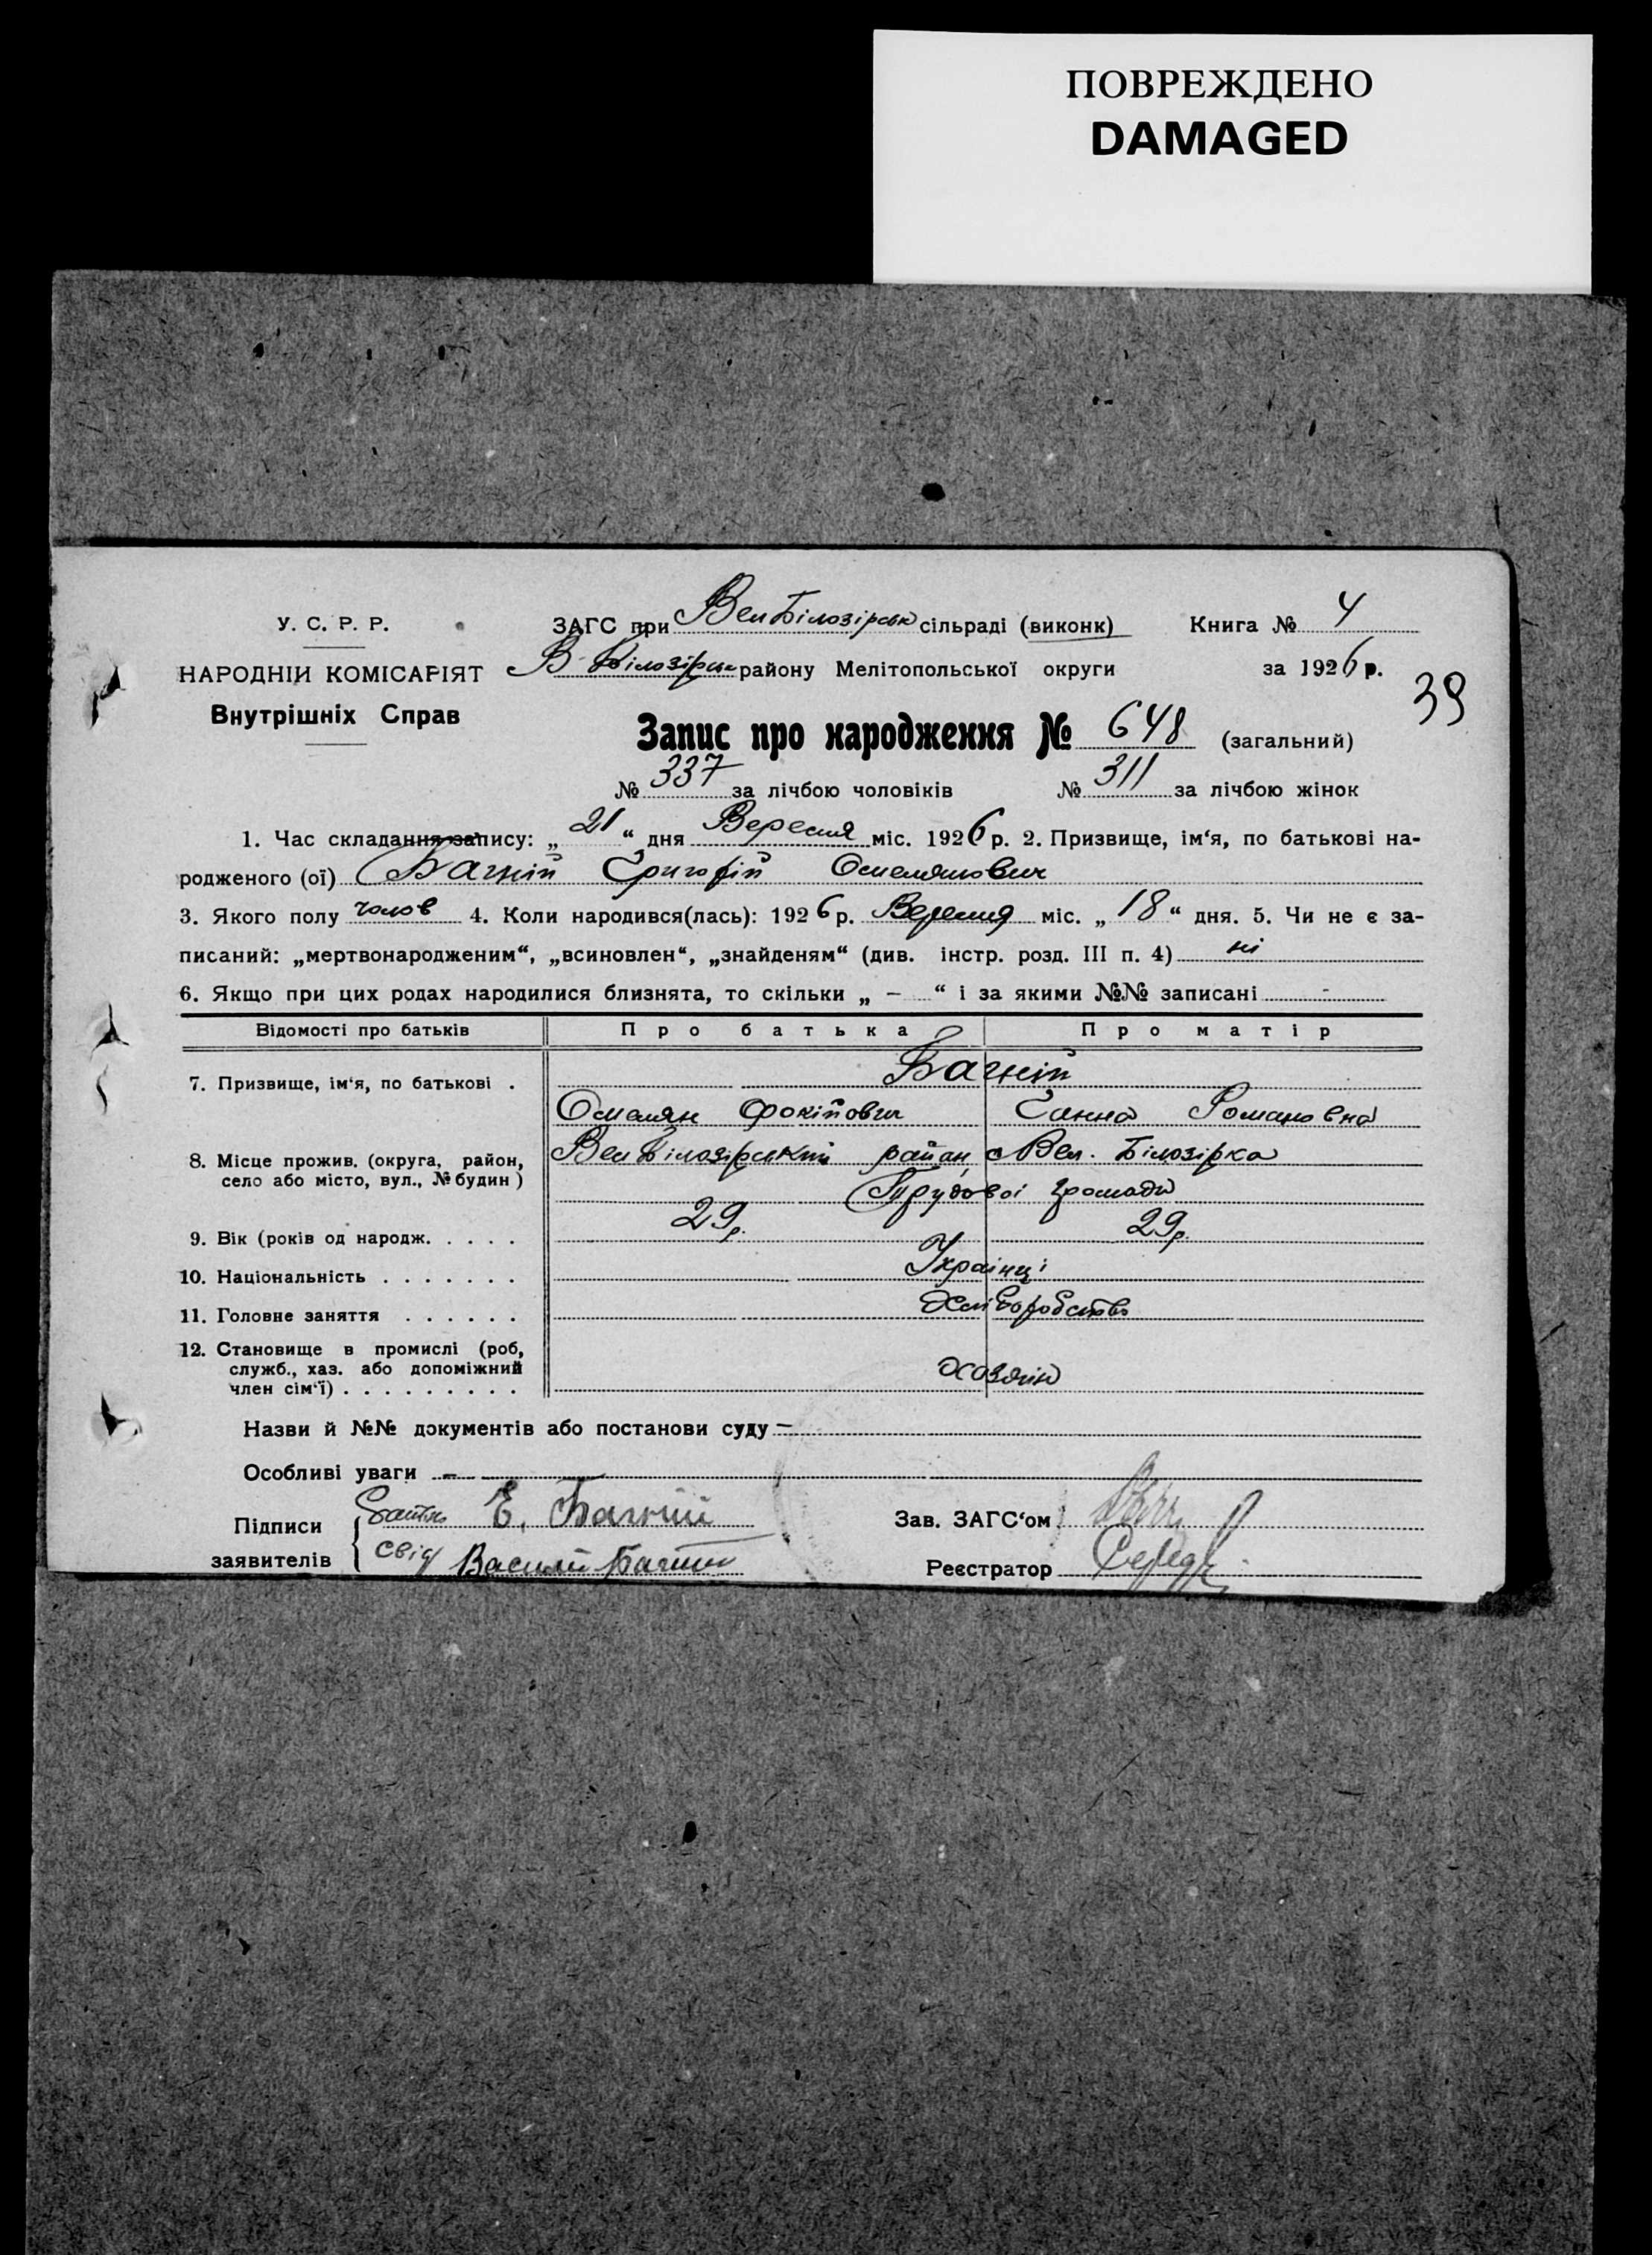 ПОВРЕЖДЕНО
DAMAGED
У. С. Р. Р.
ЗАГС при ВелБілозірськ сільраді (виконк)
Книга № 4
НАРОДНІЙ КОМІСАРІЯТ
В-Білозірськ району Мелітопольської округи
за 1926 р.
39
Внутрішніх Справ
Запис про народження № 648 (загальний)
№ 337 за лічбою чоловіків № 311 за лічбою жінок
1. Час складання запису: „ 21 “ дня Вересня міс. 1926 р. 2. Призвище, ім‘я, по батькові на-
родженого (ої) Багній Григорій Омелянович
3. Якого полу чолов 4. Коли народився(лась): 1926 р. Вересня міс. „ 18 “ дня. 5. Чи не є за-
писаний: „мертвонародженим“, „всиновлен“, „знайденям“ (див. інстр. розд. III п. 4) ні
6. Якщо при цих родах народилися близнята, то скільки „ – “ і за якими №№ записані -
Відомості про батьків Про батька Про матір
7. Призвище, ім‘я, по батькові . Багній
Омелян Фокійович Ганна Романовна
8. Місце прожив. (округа, район, ВелБілозірський район, с Вел. Білозірка
село або місто, вул., № будин) Трудової громади
9. Вік (років од народж. . . . . 29р. 29р.
10. Національність . . . . . . . Українці
11. Головне заняття . . . . . . Хліборобство
12. Становище в промислі (роб,
служб., хаз. або допоміжний
член сім‘ї) . . . . . . . . . Хозяін
Назви й №№ документів або постанови суду –
Особливі уваги –
Підписи
заявителів
батько Е. Багний
свід Василий Багний
Зав. ЗАГС‘ом
Реєстратор